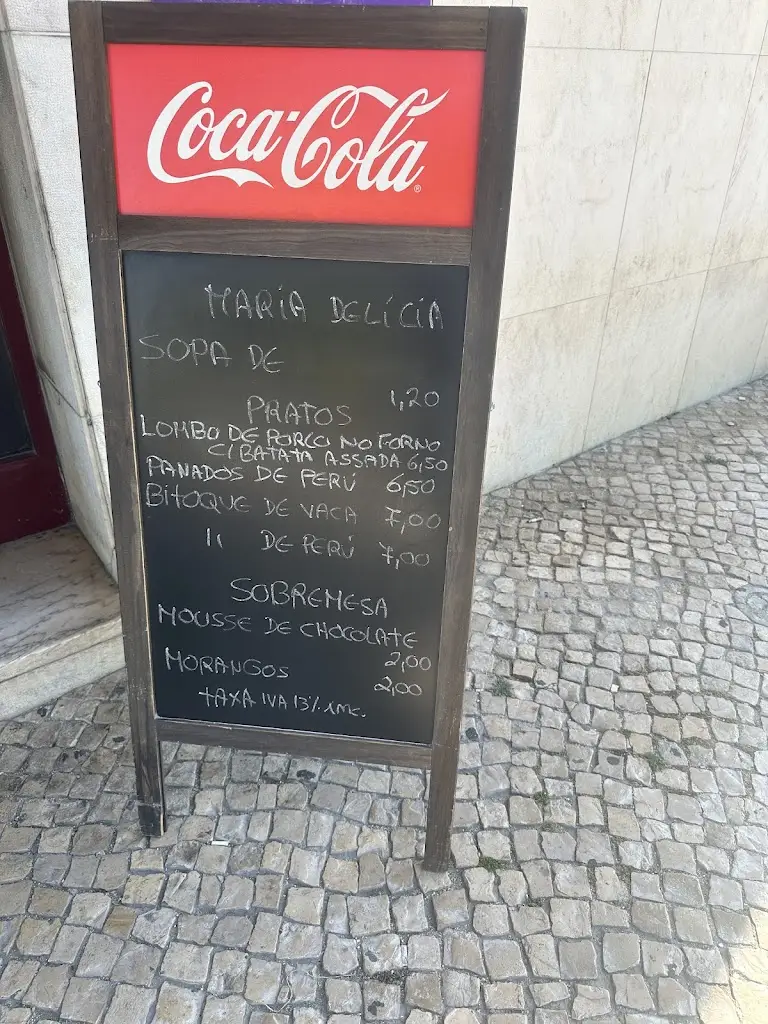 Coca-Cola®
MARIA DELÍCIA
SOPA DE
1,20
PRATOS
LOMBO DE PORCO NO FORNO
C/ BATATA ASSADA 6,50
PANADOS DE PERÚ 6,50
BITOQUE DE VACA 7,00
11 DE PERÚ 7,00
SOBREMESA
MOUSSE DE CHOCOLATE
2,00
MORANGOS 2,00
TAXA IVA 13% INC.